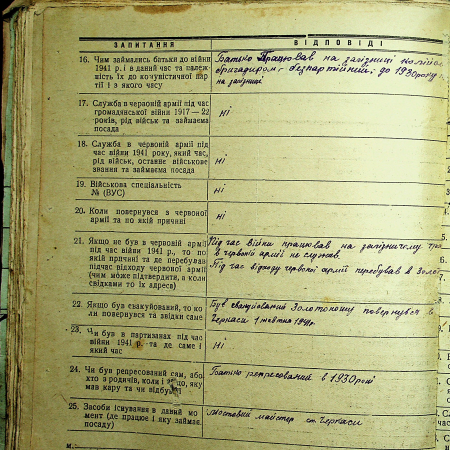 ЗАПИТАННЯ
ВІДПОВІДІ
16. Чим займались батьки до війни
1941 р. і в даний час та належ-
ність їх до комуністичної пар-
тії і з якого часу
Батько працював на залізниці
бригадиром. безпартійний; до 1930 року
на залізниці
17. Служба в червоній армії під час
громадянської війни 1917—22
років, рід військ та займаєма
посада
Ні
18. Служба в червоній армії під
час війни 1941 року, який час,
рід військ, останнє військове
звання та займаєма посада
Ні
19. Військова спеціальність
№ (ВУС)
Ні
20. Коли повернувся з червоної
армії та по якій причині
Ні
21. Якщо не був в червоній армії
під час війни 1941 р., то по
якій причині та де перебував
підчас відходу червоної армії
(чим може підтвердити, а коли
свідками то їх адреса)
Під час війни працював на залізничому
в червоній армії не служав.
Під час відходу червоної армії перебував в Золот
22. Якщо був евакуйований, то ко-
ли повернувся та звідки саме
Був евакуйований Золотоношу повернувся в
Черкаси 1 жовтня 1941р.
23. Чи був в партизанах під час
війни 1941 р. та де саме і
який час
Ні
24. Чи був репресований сам, або
хто з родичів, коли і за що, яку
мав кару та чи відбув
Батько репресований в 1930 році
25. Засоби існування в даний мо-
мент (де працює і яку займає
посаду)
Мостовий майстер ст. Черкаси